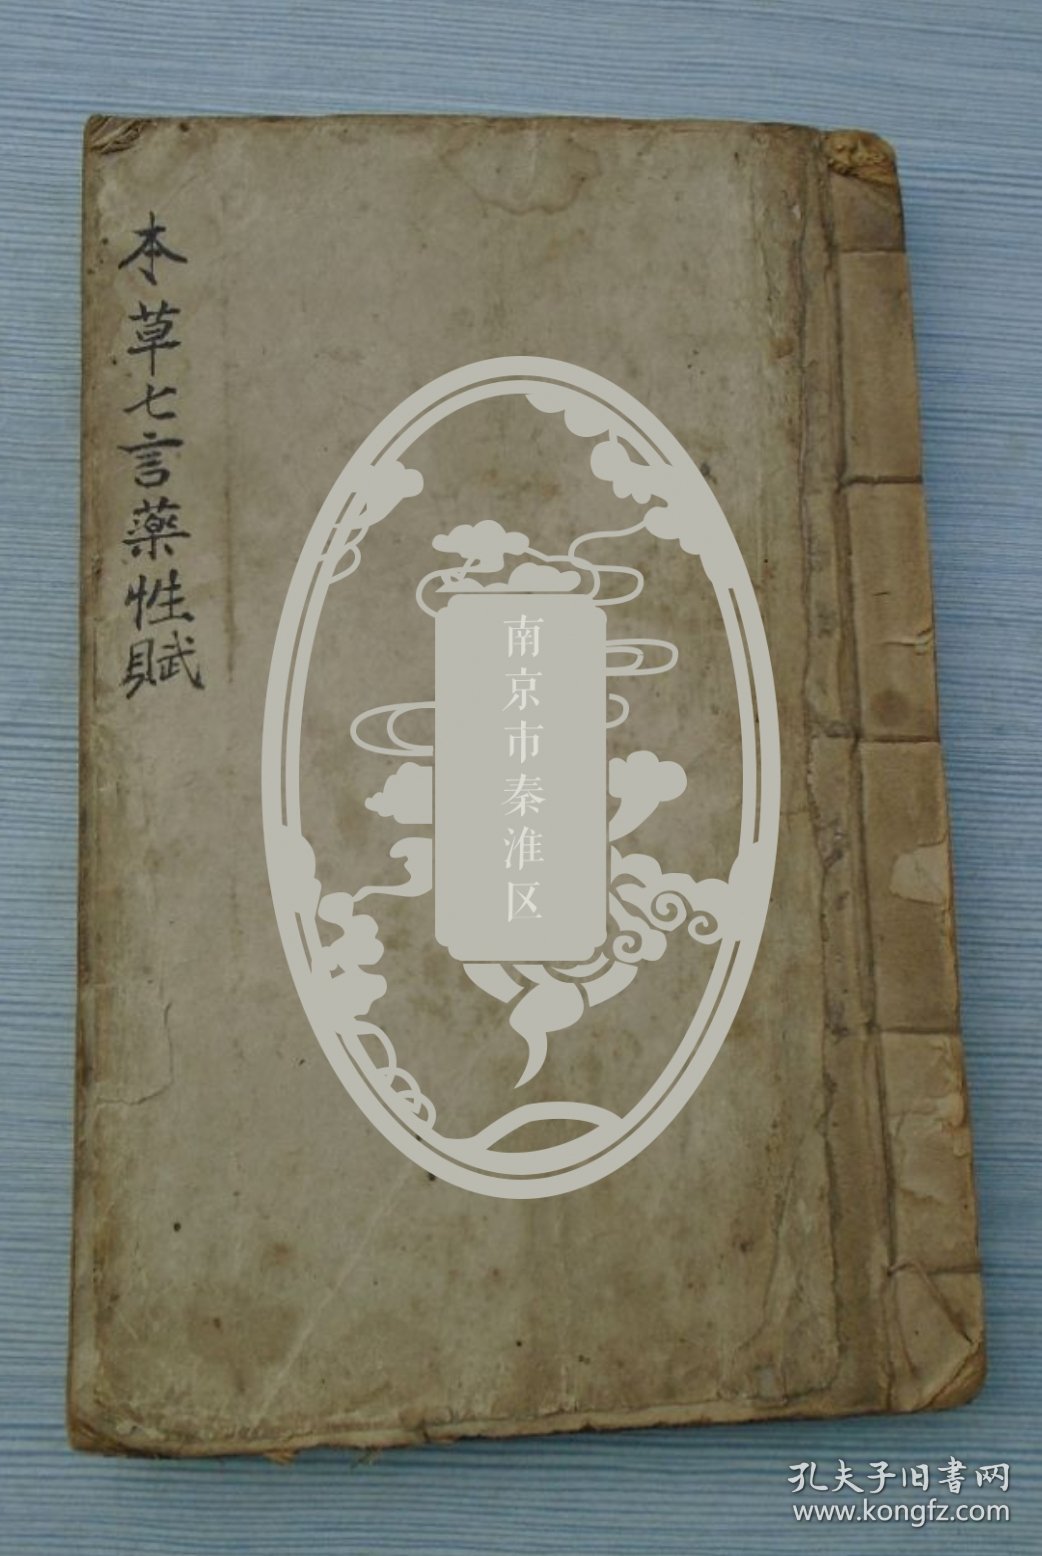 本草七言藥性賦
南京市秦淮区
孔夫子旧書网
www.kongfz.com